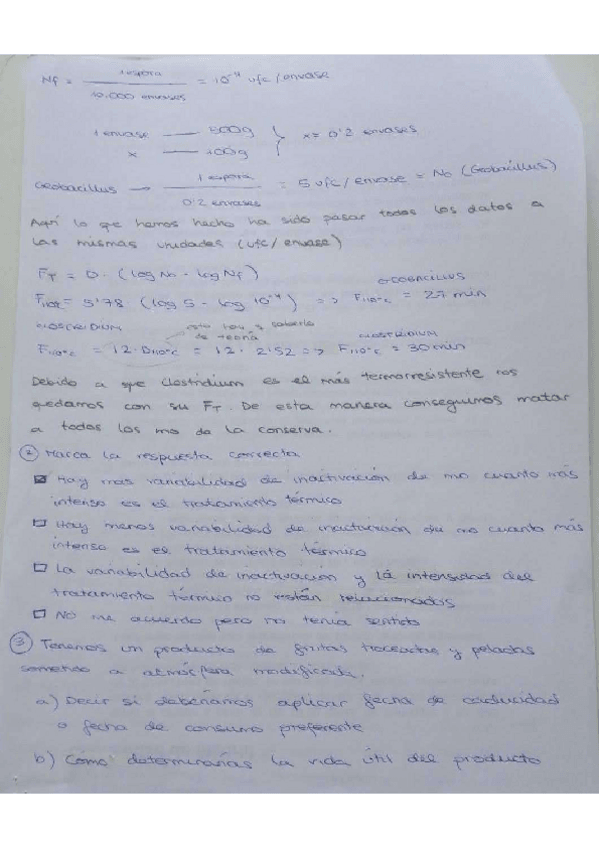 Nf = 1 espora / 10.000 envases = 10⁻⁴ ufc/envase
1 envase — 500g } x = 0'2 envases
x — 100g
Geobacillus → 1 espora / 0'2 envases = 5 ufc/envase = No (Geobacillus)
Aquí lo que hemos hecho ha sido pasar todos los datos a
las mismas unidades (ufc/envase)
F_T = D · (log No - log Nf)
GEOBACILLUS
F110ºC = 5'78 (log 5 - log 10⁻⁴) => F110ºC = 27 min
CLOSTRIDIUM esto hay q saberlo de teoría CLOSTRIDIUM
F110ºC = 12 · D110ºC = 12 · 2'52 => F110ºC = 30 min
Debido a que Clostridium es el más termorresistente nos
quedamos con su F_T. De esta manera conseguimos matar
a todos los mo de la conserva.
② Marca la respuesta correcta
☒ Hay más variabilidad de inactivación de mo cuanto más
intenso es el tratamiento térmico
☐ Hay menos variabilidad de inactivación de mo cuanto más
intenso es el tratamiento térmico
☐ La variabilidad de inactivación y la intensidad del
tratamiento térmico no están relacionados
☐ No me acuerdo pero no tenía sentido
③ Tenemos un producto de frutas troceadas y peladas
sometido a atmósfera modificada.
a) Decir si deberíamos aplicar fecha de caducidad
o fecha de consumo preferente
b) Cómo determinarías la vida útil del producto